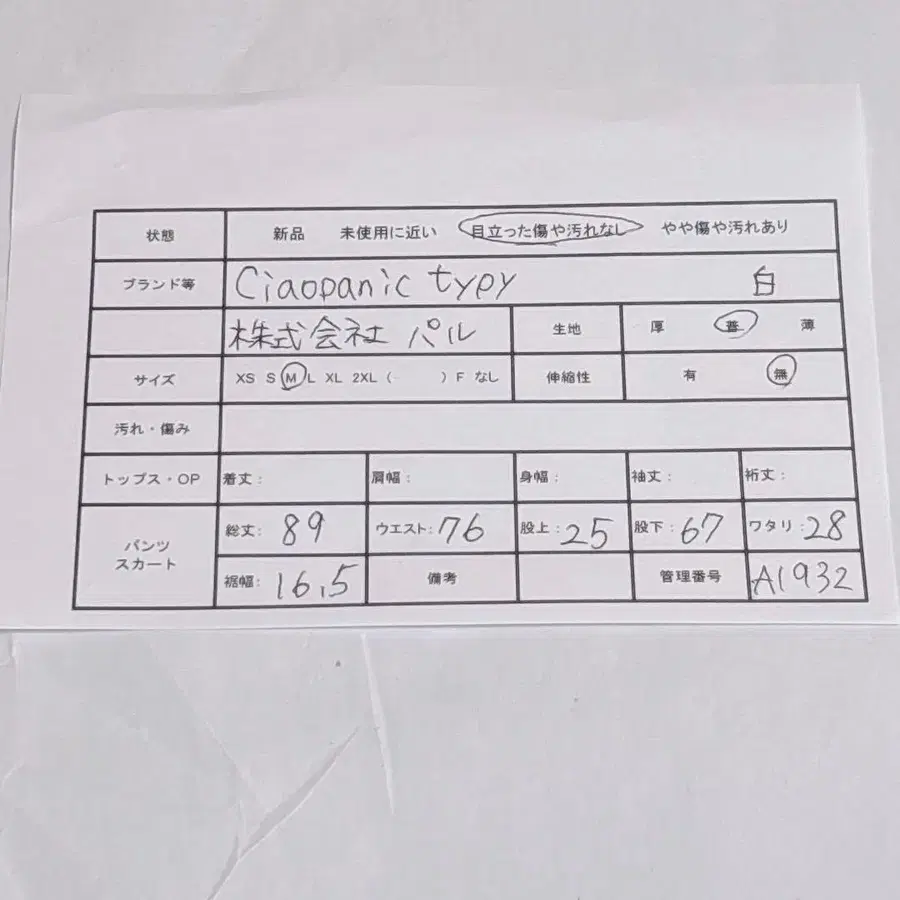 状態 新品 未使用に近い 目立った傷や汚れなし やや傷や汚れあり
ブランド等 Ciaopanic typy 白
株式会社 パル 生地 厚 普 薄
サイズ XS S M L XL 2XL ( ) F なし 伸縮性 有 無
汚れ・傷み
トップス・OP 着丈: 肩幅: 身幅: 袖丈: 裄丈:
パンツ スカート 総丈: 89 ウエスト: 76 股上: 25 股下: 67 ワタリ: 28
裾幅: 16.5 備考 管理番号 A1932